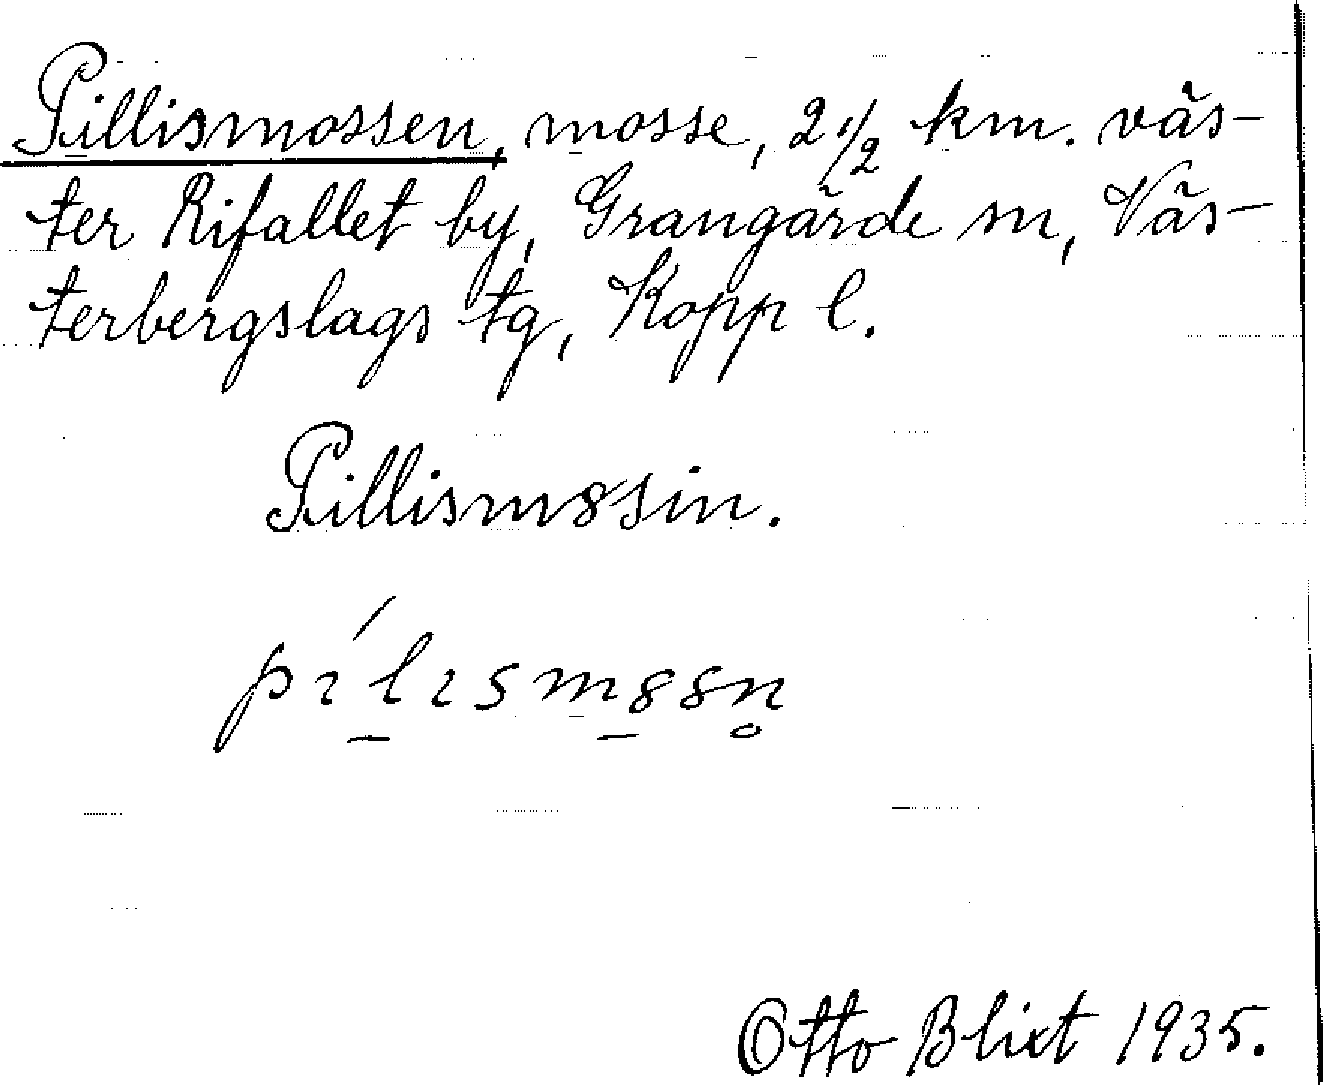 Pillismossen, mosse, 2 1/2 km. väs-
ter Rifallet by, Grangärde sn, Väs-
terbergslags tg, Kopp l.
Pillismȣsin.
pílɪsmȣsn̥
Otto Blixt 1935.